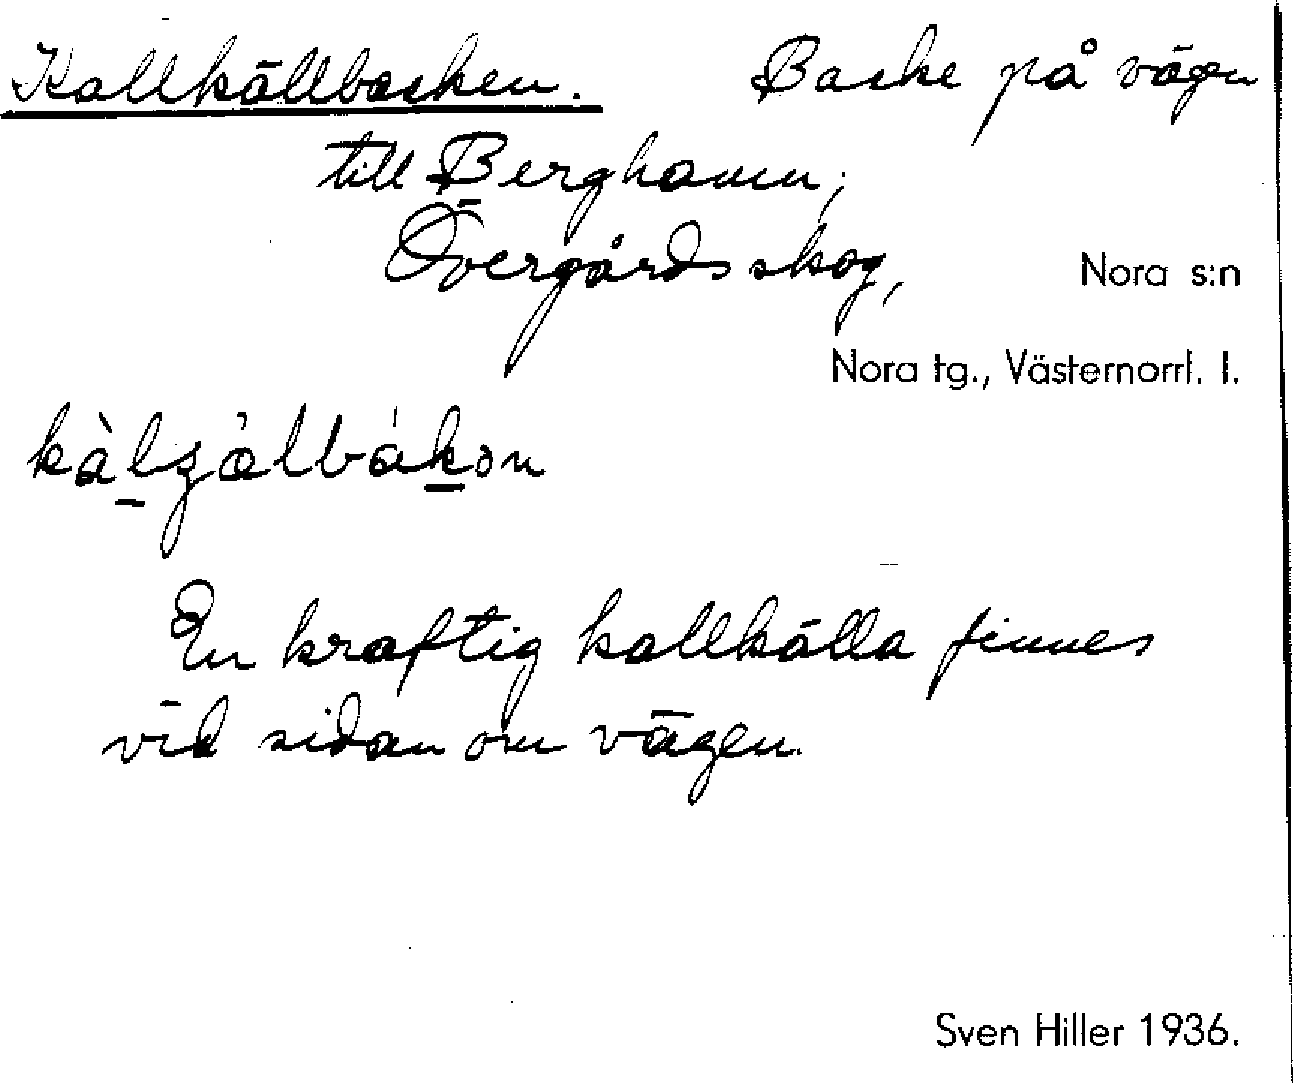 Kallkällbacken. Backe på vägen
till Berghamn;
Övergårds skog, Nora s:n
Nora tg., Västernorrl. l.
En kraftig kallkälla finnes
vid sidan om vägen.
Sven Hiller 1936.